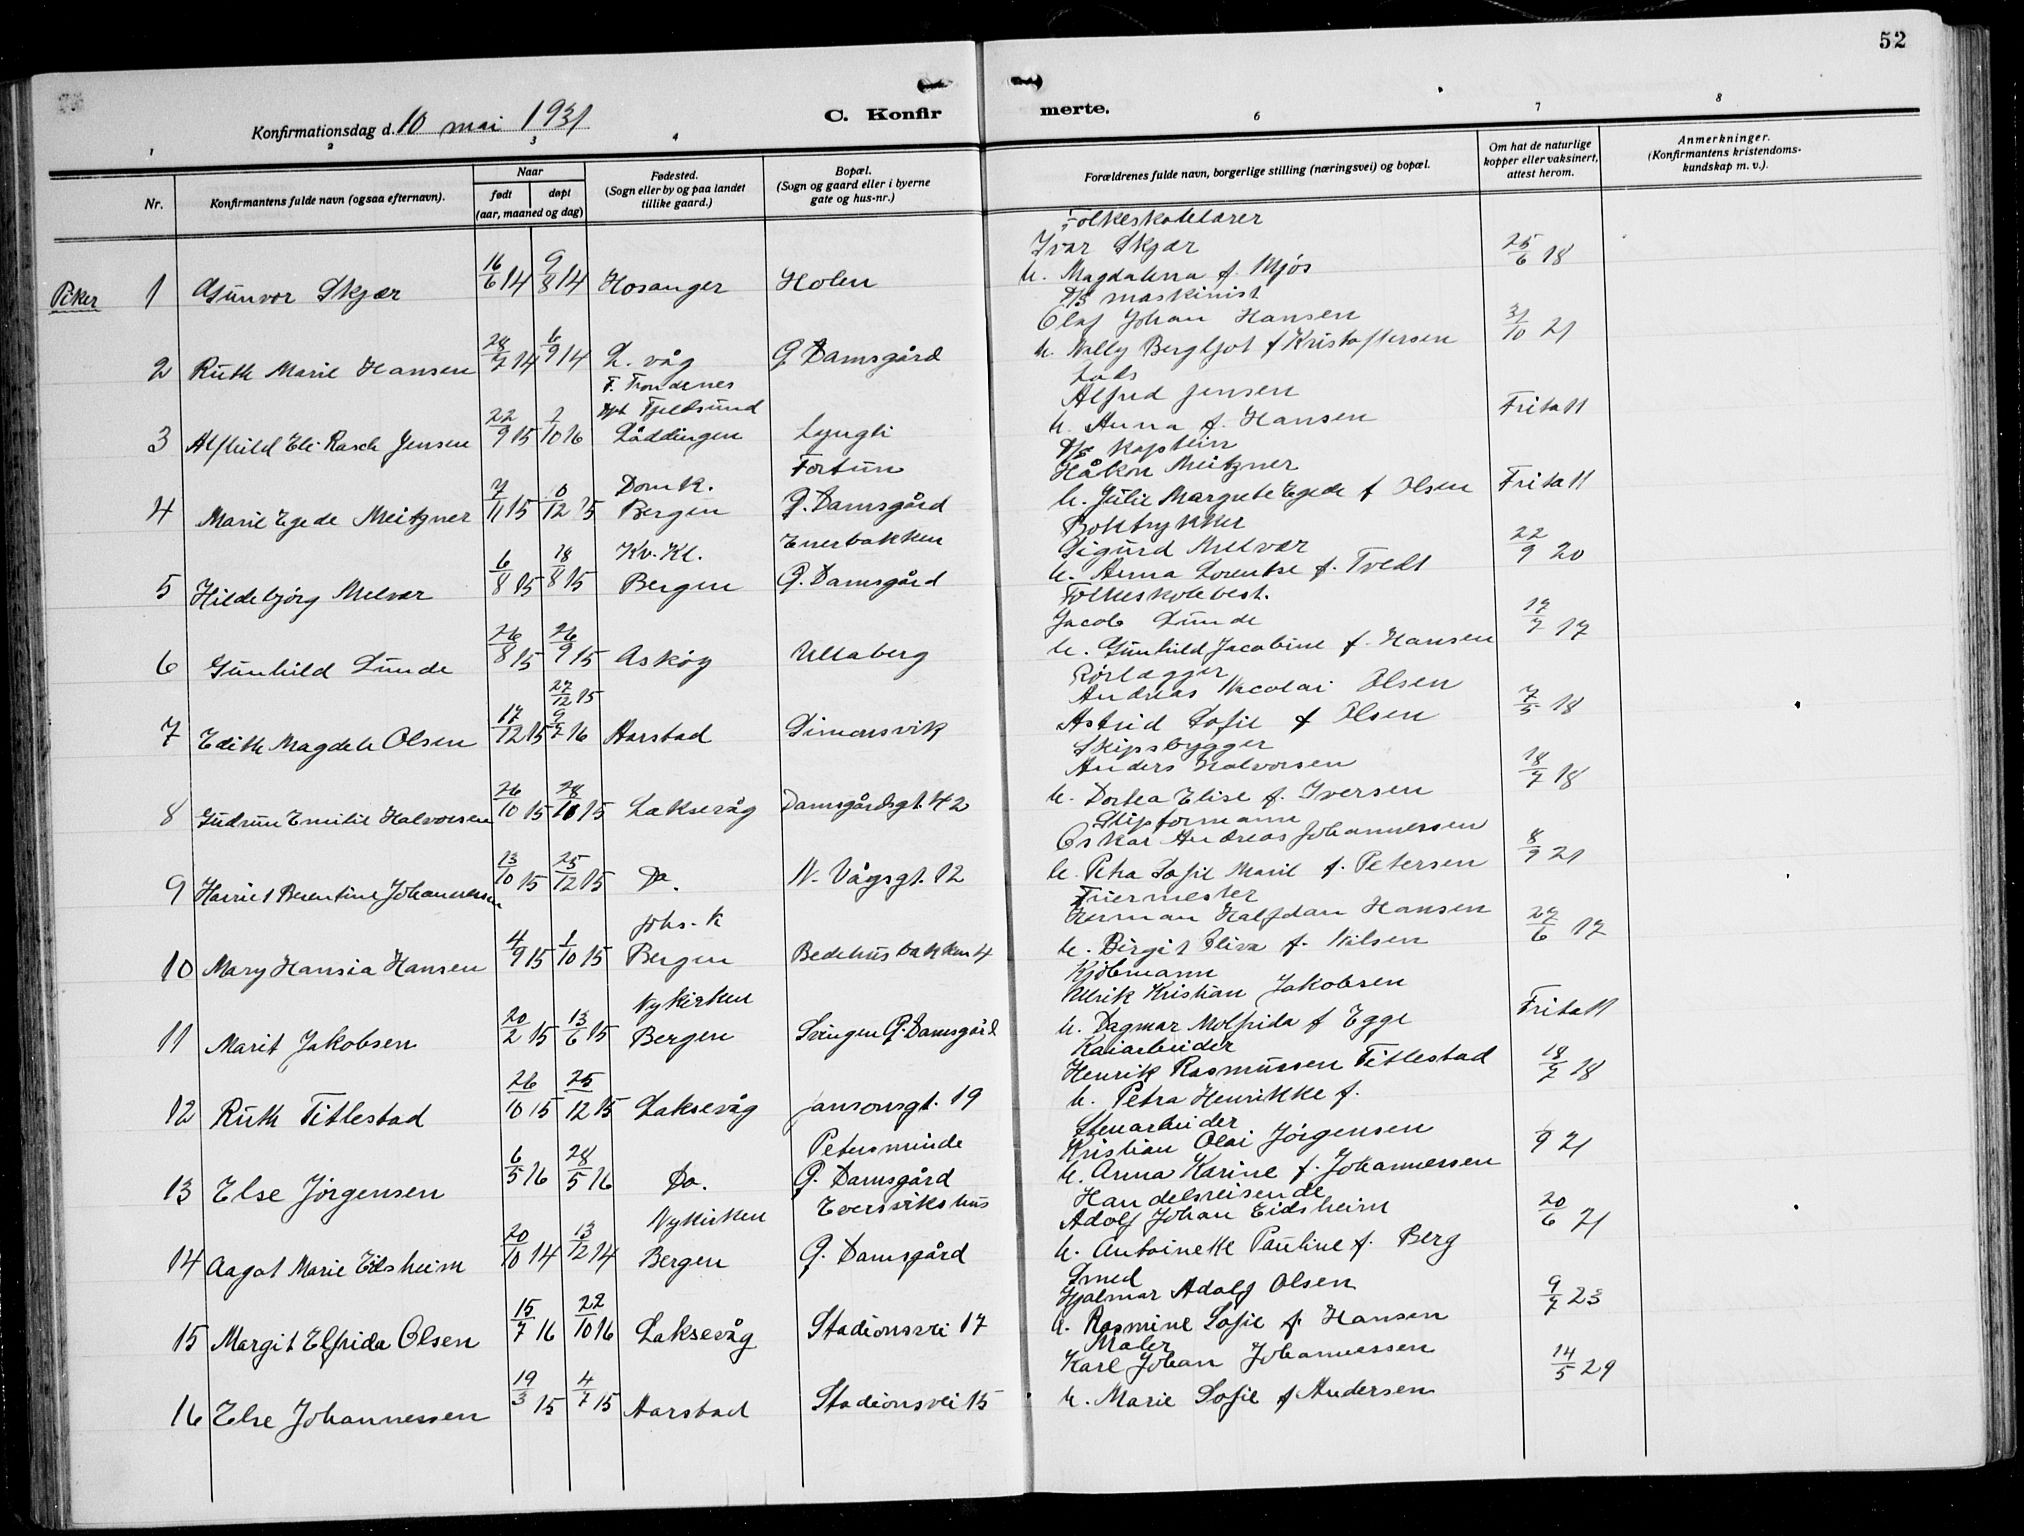 52
Konfirmationsdag d. 10 mai 1931
C. Konfirmerte.
1 2 3 4 6 7 8
Nr.
Konfirmantens fulde navn (ogsaa efternavn).
Naar
født døpt
(aar, maaned og dag)
Fødested.
(Sogn eller by og paa landet
tillike gaard.)
Bopæl.
(Sogn og gaard eller i byerne
gate og hus-nr.)
Forældrenes fulde navn, borgerlige stilling (næringsvei) og bopæl.
Om hat de naturlige
kopper eller vaksinert,
attest herom.
Anmerkninger.
(Konfirmantens kristendoms-
kundskap m. v.).
Folkeskolelærer
Ivar Skjær
Piker 1 Gunvor Skjær 16/6 14 9/8 14 Hosanger Holen h. Magdalena f. Mjøs 25/6 18
D/S maskinist
Olaf Johan Hansen
2 Ruth Marie Hansen 28/7 14 6/9 14 L. våg G. Damsgård h. Nelly Bergljot f Kristoffersen 31/10 21
F. Trondenes
Døpt Tjeldsund
Lods
Alfred Jensen
3 Alfhild Eli Rasch Jensen 22/9 15 1/10 16 Løddingen Lyngli h. Anna f. Hansen Frita11
D/S Kaptein
Håkon Meitzner
Domk. Fortun
4 Marie Egede Meitzner 7/11 15 /12 15 Bergen G. Damsgård h. Julie Margrete Egede f Olsen Frita11
Boktrykker
Sigurd Melvær
Kv. Kl. Enerbakken
5 Hildebjørg Melvær 6/8 15 18/8 15 Bergen G. Damsgård h. Anna Lorentse f. Tvedt 22/9 20
Folkeskolebest.
Jacob Lunde
6 Gunhild Lunde 26/8 15 26/9 15 Askøy Ullaberg h. Gunhild Jacobine f. Hansen 17/7 17
Rørlægger
Andreas Nicolai Olsen
27/12 15
7 Edith Magdele Olsen 17/12 15 9/7 16 Aarstad Simonsvik Astrid Sofie f Olsen 7/5 18
Skipsbygger
Anders Halvorsen
8 Gudrun Emilie Halvorsen 26/10 15 28/10 15 Laksevåg Damsgårdsgt. 42 h. Dortea Elise f. Iversen 18/7 18
Skipformann
Oskar Andreas Johannessen
9 Harriet Berentine Johannessen 13/10 15 25/12 15 Do. N. Vågsgt. 12 h. Petra Sofie Marie f. Petersen 8/9 21
Fuermester
Herman Halfdan Hansen
Johs. K
10 Mary Hansia Hansen 4/9 15 1/10 15 Bergen Bedehusbakken 4 h. Birgit Oliva f. Nilsen 27/6 17
Kjøbmann
Ulrik Kristian Jakobsen
Nykirken
11 Marit Jakobsen 20/2 15 13/6 15 Bergen Svingen G. Damsgård h. Dagmar Molfrida f Egge Frita11
Kaiarbeider
Henrik Rasmussen Titlestad
12 Ruth Titlestad 26/10 15 25/12 15 Laksevåg Jansonsgt. 19 h. Petra Henrikke f. 18/7 18
Stenarbeider
Kristian Olai Jørgensen
Petersminde
13 Else Jørgensen 6/5 16 28/5 16 Do. G. Damsgård h. Anna Karine f. Johannessen /9 21
Handelsreisende
Adolf Johan Eidsheim
Nykirken Evensvikshus
14 Aagot Marie Eidsheim 20/10 14 13/12 14 Bergen G. Damsgård h. Antoinette Pauline f. Berg 20/6 21
Smed
Hjalmar Adolf Olsen
15 Margit Elfrida Olsen 15/7 16 22/10 16 Laksevåg Stadionsvei 17 h. Rasmine Sofie f. Hansen 9/7 23
Maler
Karl Johan Johannessen
16 Else Johannessen 19/3 15 4/7 15 Aarstad Stadionsvei 15 h. Marie Sofie f Andersen 14/5 29